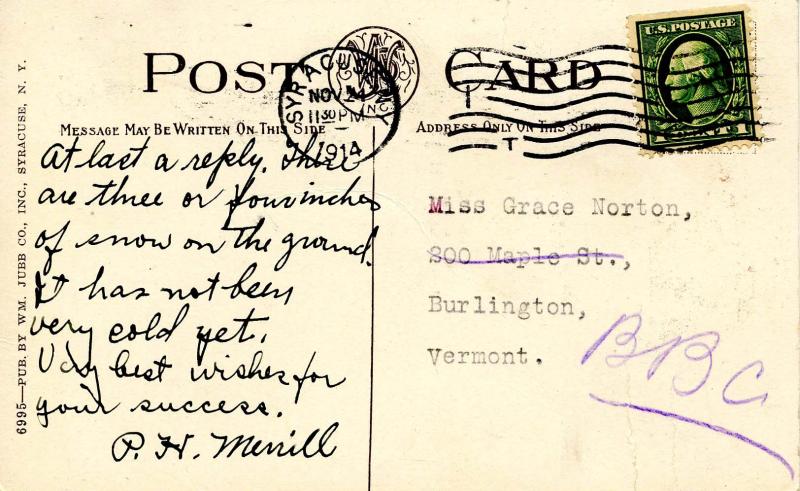 POST CARD
SYRACUSE, N.Y.
NOV 24
11 30 PM
1914
U.S. POSTAGE
MESSAGE MAY BE WRITTEN ON THIS SIDE
ADDRESS ONLY ON THIS SIDE
At last a reply. There
are three or four inches
of snow on the ground.
It has not been
very cold yet.
Very best wishes for
your success.
P. H. Merrill
Miss Grace Norton,
800 Maple St.,
Burlington,
Vermont.
BBC
6995—PUB. BY WM. JUBB CO., INC., SYRACUSE, N. Y.